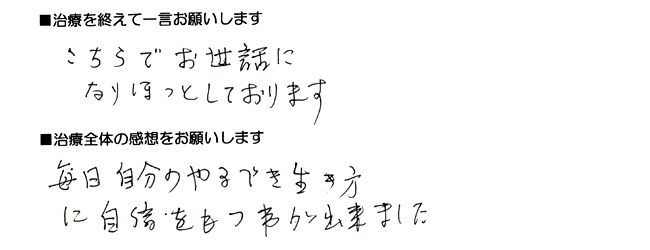 ■治療を終えて一言お願いします
こちらでお世話に
なりほっとしております
■治療全体の感想をお願いします
毎日自分のやるでき生き方
に自信をもつ事が出来ました